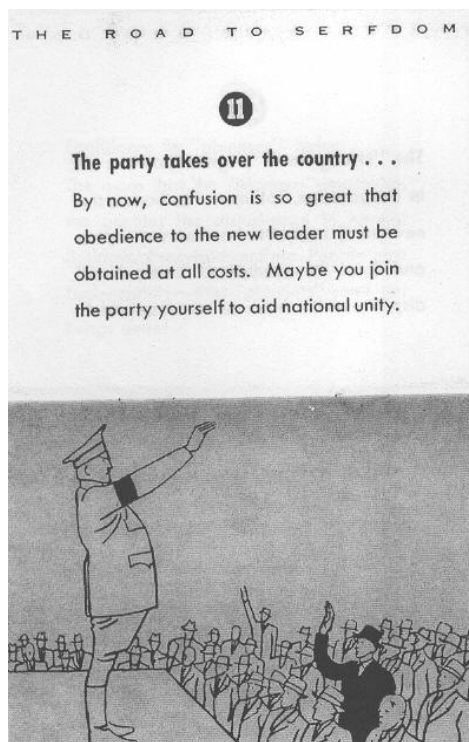 THE ROAD TO SERFDOM
11
The party takes over the country . . .
By now, confusion is so great that
obedience to the new leader must be
obtained at all costs. Maybe you join
the party yourself to aid national unity.